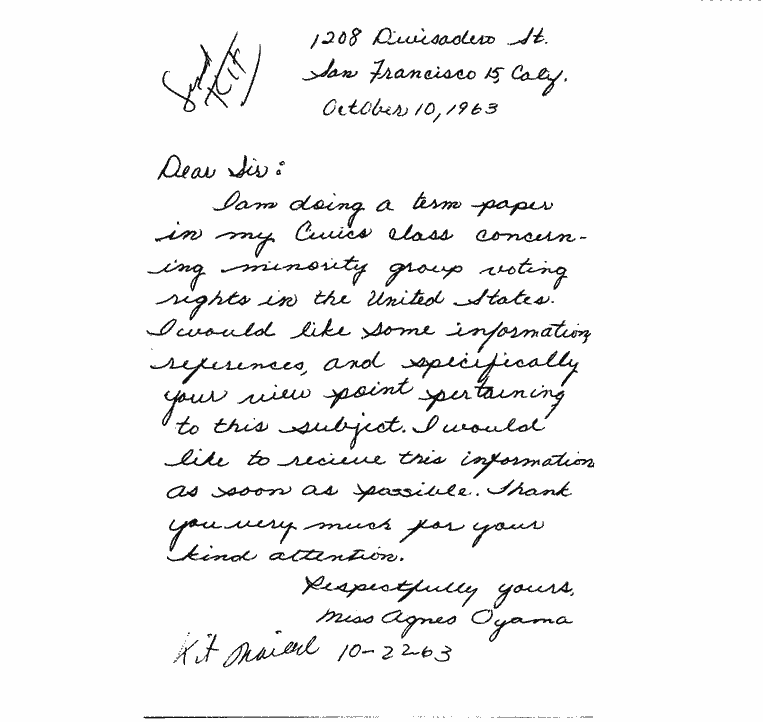 Send
KIT
1208 Divisadero St.
San Francisco 15, Calif.
October 10, 1963
Dear Sir:
I am doing a term paper
in my Civics class concern-
ing minority group voting
rights in the United States.
I would like some information,
references, and specifically
your view point pertaining
to this subject. I would
like to recieve this information
as soon as possible. Thank
you very much for your
kind attention.
Respectfully yours,
Miss Agnes Oyama
Kit Mailed 10-22-63